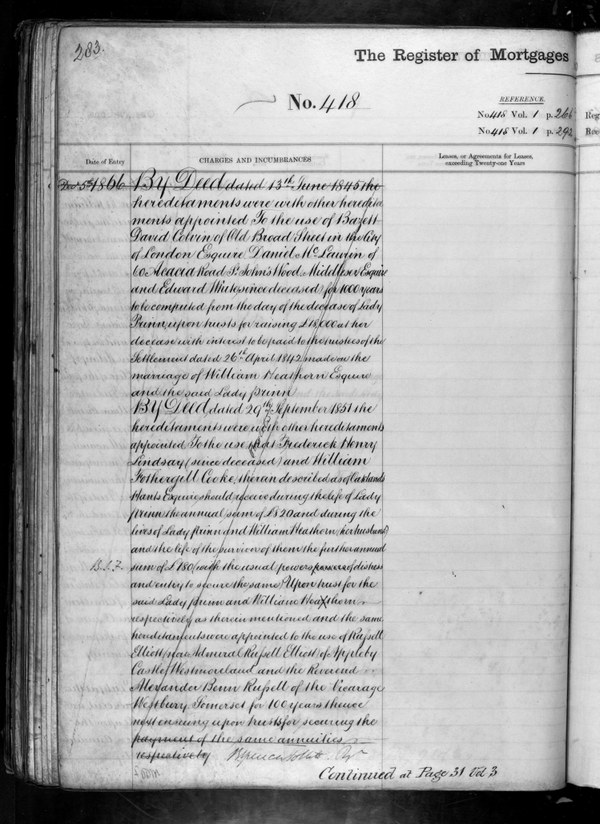 283.
The Register of Mortgages
No. 418
REFERENCE.
No. 415 Vol. 1 p. 266
No. 415 Vol. 1 p. 292
Date of Entry
CHARGES AND INCUMBRANCES
Leases, or Agreements for Leases, exceeding Twenty-one Years
Nov 5th 1866 By Deed dated 13th June 1845 the
hereditaments were with other heredita
ments appointed To the use of Bazett
David Colvin of Old Broad Street in the City
of London Esquire Daniel McLaurin of
60 Acacia Road St John's Wood Middlesex Esquire
and Edward White (since deceased) for 1000 years
to be computed from the day of the decease of Lady
Prinn upon trusts for raising £18,000 at her
decease with interest to be paid to the trustees of the
Settlement dated 26th April 1842 made on the
marriage of William Heathorn Esquire
and the said Lady Prinn
By Deed dated 29th September 1851 the
hereditaments were with other hereditaments
appointed To the use that Frederick Henry
Lindsay (since deceased) and William
Fothergill Cooke, therein described as of Oaklands
Hants Esquire should receive during the life of Lady
Prinn the annual sum of £820 and during the
lives of Lady Prinn and William Heathorn, her husband
and the life of the survivor of them the further annual
sum of £180 with the usual powers powers of distress
and entry to secure the same, Upon trust for the
said Lady Prinn and William Heathorn
respectively as therein mentioned and the same
hereditaments were appointed to the use of Russell
Elliott, now Admiral Russell Elliott, of Appleby
Castle, Westmoreland and the Reverend
Alexander Benn Russell of the Vicarage
Westbury Somerset for 100 years thence
next ensuing upon trusts for securing the
payment of the same annuities
respectively
Continued at Page 31 Vol 3